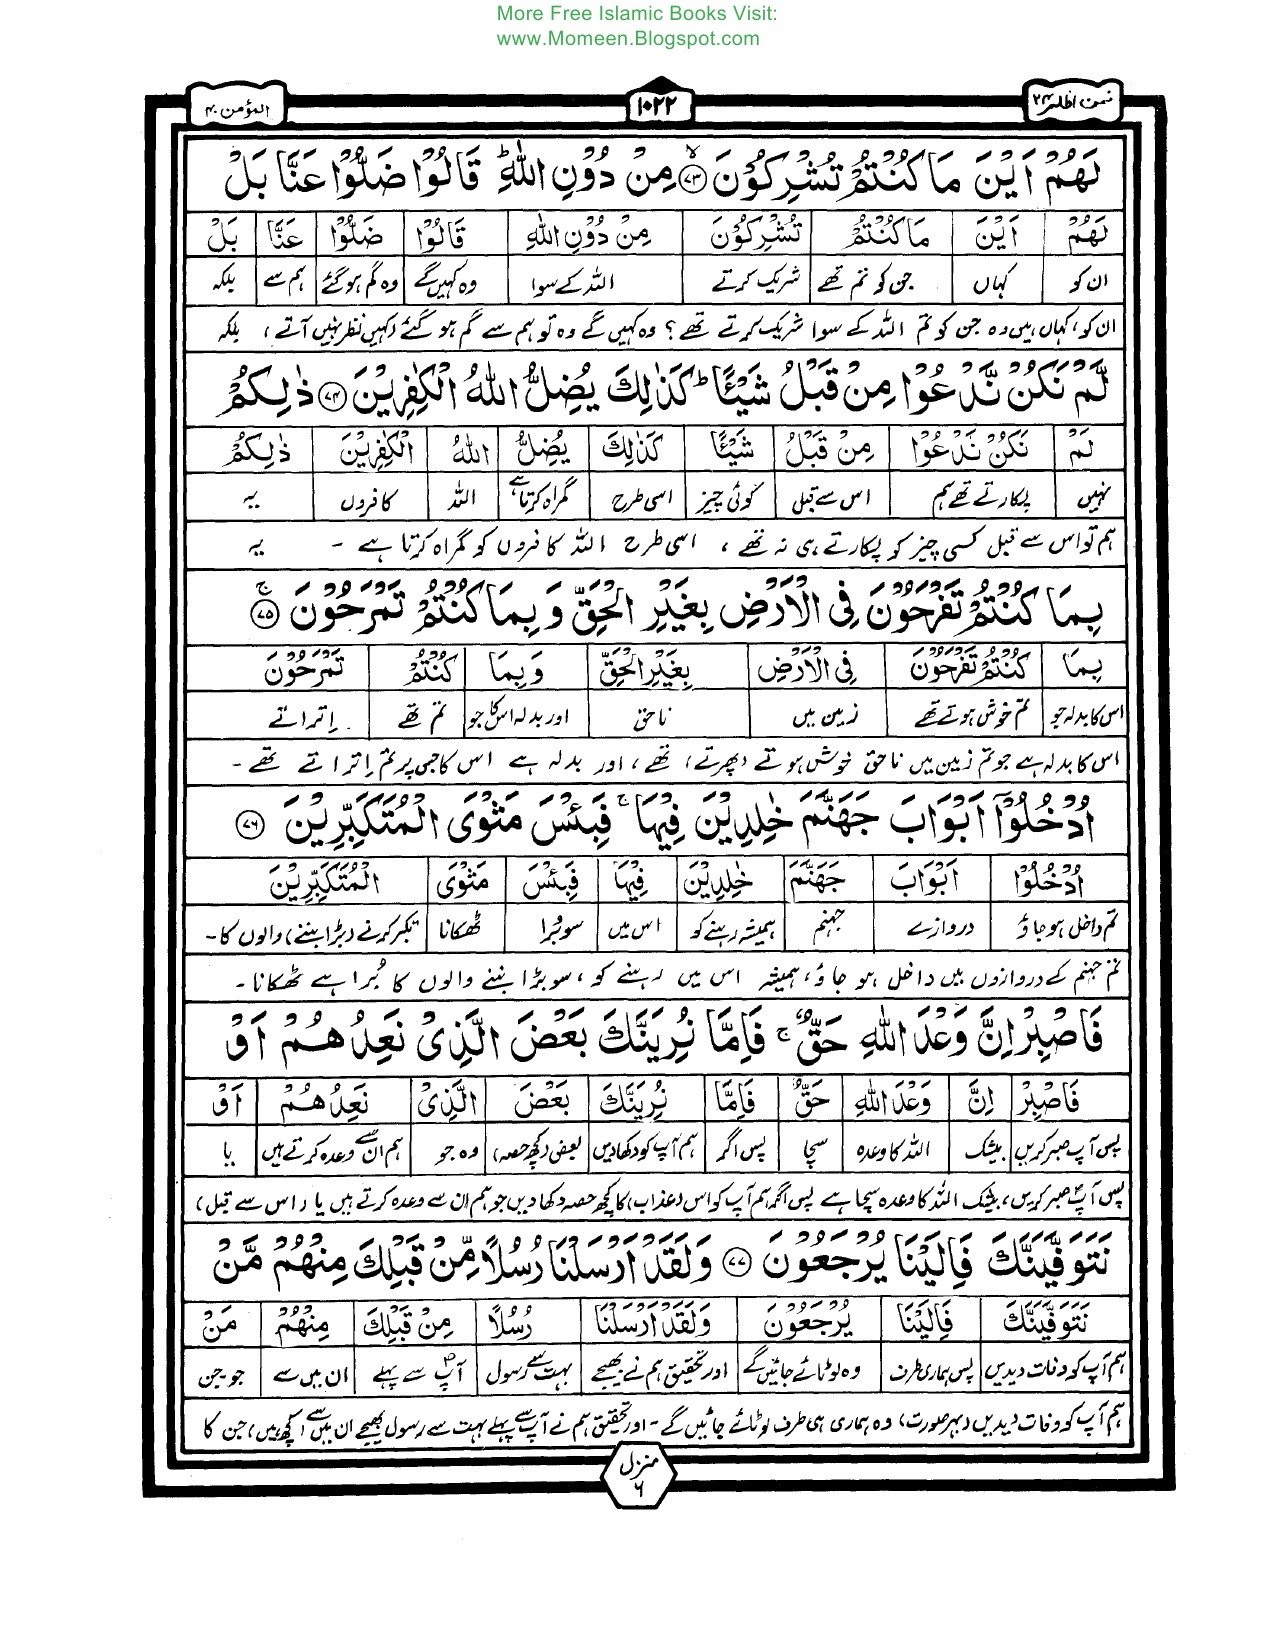 More Free Islamic Books Visit:
www.Momeen.Blogspot.com
فمن اظلم ۲۴
۱۰۲۲
المؤمن ۴۰
لَهُمْ اَيْنَ مَا كُنْتُمْ تُشْرِكُوْنَ ۙ﴿۷۳﴾ مِنْ دُوْنِ اللّٰهِ ؕ قَالُوْا ضَلُّوْا عَنَّا بَلْ
لَهُمْ اَيْنَ مَا كُنْتُمْ تُشْرِكُوْنَ مِنْ دُوْنِ اللّٰهِ قَالُوْا ضَلُّوْا عَنَّا بَلْ
ان کو کہاں جن کو تم تھے شریک کرتے اللہ کے سوا وہ کہیں گے وہ گم ہوگئے ہم سے بلکہ
ان کو، کہاں ہیں وہ جن کو تم اللہ کے سوا شریک کرتے تھے؟ وہ کہیں گے وہ تو ہم سے گم ہو گئے (کہیں نظر نہیں آتے)، بلکہ
لَّمْ نَكُنْ نَّدْعُوْا مِنْ قَبْلُ شَيْئًا ؕ كَذٰلِكَ يُضِلُّ اللّٰهُ الْكٰفِرِيْنَ ﴿۷۴﴾ ذٰلِكُمْ
لَمْ نَكُنْ نَدْعُوْا مِنْ قَبْلُ شَيْئًا كَذٰلِكَ يُضِلُّ اللّٰهُ الْكٰفِرِيْنَ ذٰلِكُمْ
نہیں پکارتے تھے ہم اس سے قبل کوئی چیز اسی طرح گمراہ کرتا ہے اللہ کافروں یہ
ہم تو اس سے قبل کسی چیز کو پکارتے ہی نہ تھے، اسی طرح اللہ کافروں کو گمراہ کرتا ہے - یہ
بِمَا كُنْتُمْ تَفْرَحُوْنَ فِى الْاَرْضِ بِغَيْرِ الْحَقِّ وَ بِمَا كُنْتُمْ تَمْرَحُوْنَ ۚ﴿۷۵﴾
بِمَا كُنْتُمْ تَفْرَحُوْنَ فِى الْاَرْضِ بِغَيْرِ الْحَقِّ وَ بِمَا كُنْتُمْ تَمْرَحُوْنَ
اس کا بدلہ جو تم خوش ہوتے تھے زمین میں ناحق اور بدلہ اس کا جو تم تھے اِتراتے
اس کا بدلہ ہے جو تم زمین میں ناحق خوش ہوتے (پھرتے) تھے، اور بدلہ ہے اس کا جس پر تم اِتراتے تھے -
اُدْخُلُوْٓا اَبْوَابَ جَهَنَّمَ خٰلِدِيْنَ فِيْهَا ۚ فَبِئْسَ مَثْوَى الْمُتَكَبِّرِيْنَ ﴿۷۶﴾
اُدْخُلُوْا اَبْوَابَ جَهَنَّمَ خٰلِدِيْنَ فِيْهَا فَبِئْسَ مَثْوَى الْمُتَكَبِّرِيْنَ
تم داخل ہو جاؤ دروازے جہنم ہمیشہ رہنے کو اس میں سو بُرا ٹھکانا تکبر کرنے (بڑا بننے) والوں کا -
تم جہنم کے دروازوں میں داخل ہو جاؤ، ہمیشہ اس میں رہنے کو، سو بڑا بننے والوں کا بُرا ہے ٹھکانا -
فَاصْبِرْ اِنَّ وَعْدَ اللّٰهِ حَقٌّ ۚ فَاِمَّا نُرِيَنَّكَ بَعْضَ الَّذِىْ نَعِدُهُمْ اَوْ
فَاصْبِرْ اِنَّ وَعْدَ اللّٰهِ حَقٌّ فَاِمَّا نُرِيَنَّكَ بَعْضَ الَّذِىْ نَعِدُهُمْ اَوْ
پس آپ صبر کریں بیشک اللہ کا وعدہ سچا پس اگر ہم آپ کو دکھا دیں بعض (کچھ حصہ) وہ جو ہم ان سے وعدہ کرتے ہیں یا
پس آپؐ صبر کریں، بیشک اللہ کا وعدہ سچا ہے پس اگر ہم آپ کو اس (عذاب) کا کچھ حصہ دکھا دیں جو ہم ان سے وعدہ کرتے ہیں یا (اس سے قبل)
نَتَوَفَّيَنَّكَ فَاِلَيْنَا يُرْجَعُوْنَ ﴿۷۷﴾ وَلَقَدْ اَرْسَلْنَا رُسُلًا مِّنْ قَبْلِكَ مِنْهُمْ مَّنْ
نَتَوَفَّيَنَّكَ فَاِلَيْنَا يُرْجَعُوْنَ وَلَقَدْ اَرْسَلْنَا رُسُلًا مِنْ قَبْلِكَ مِنْهُمْ مَنْ
ہم آپ کو وفات دیدیں پس ہماری طرف وہ لوٹائے جائیں گے اور تحقیق ہم نے بھیجے بہت سے رسول آپؐ سے پہلے ان میں سے جو جن
ہم آپ کو وفات دیدیں (بہر صورت) وہ ہماری ہی طرف لوٹائے جائیں گے - اور تحقیق ہم نے آپ سے پہلے بہت سے رسول بھیجے ان میں سے (کچھ ہیں) جن کا
منزل
۶